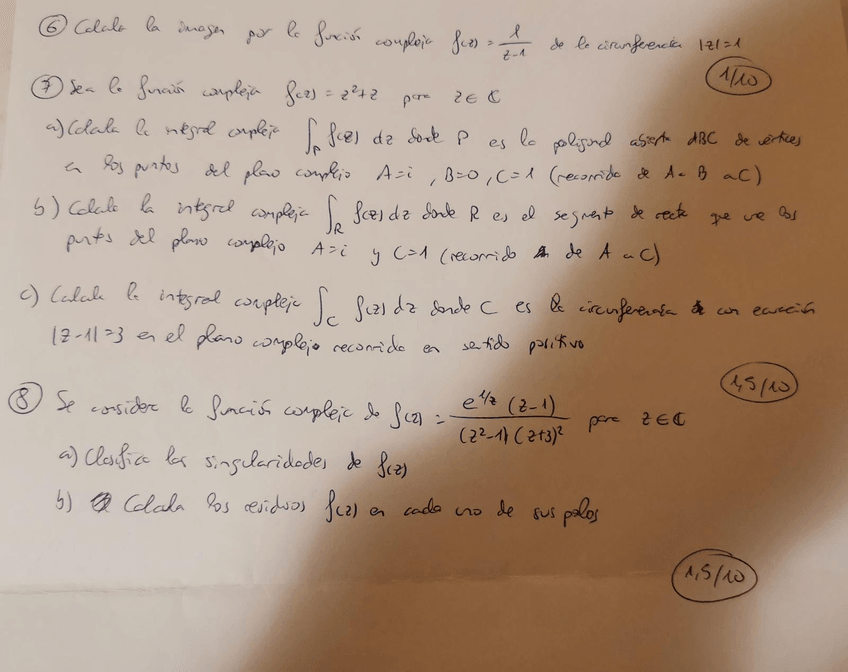 ⑥ Calcula la imagen por la función compleja f(z) = 1/(z-1) de la circunferencia |z|=1
1/10
⑦ Sea la función compleja f(z) = z²+z para z∈ℂ
a) Calcula la integral compleja ∫_P f(z) dz donde P es la poligonal abierta ABC de vértices
en los puntos del plano complejo A=i, B=0, C=1 (recorrido de A a B a C)
b) Calcula la integral compleja ∫_R f(z) dz donde R es el segmento de recta que une los
puntos del plano complejo A=i y C=1 (recorrido de A a C)
c) Calcula la integral compleja ∫_C f(z) dz donde C es la circunferencia con ecuación
|z-1|=3 en el plano complejo recorrida en sentido positivo
1,5/10
⑧ Se considera la función compleja de f(z) = e^{1/z} (z-1) / ((z²-1) (z+3)²) para z∈ℂ
a) Clasifica las singularidades de f(z)
b) Calcula los residuos f(z) en cada uno de sus polos
1,5/10